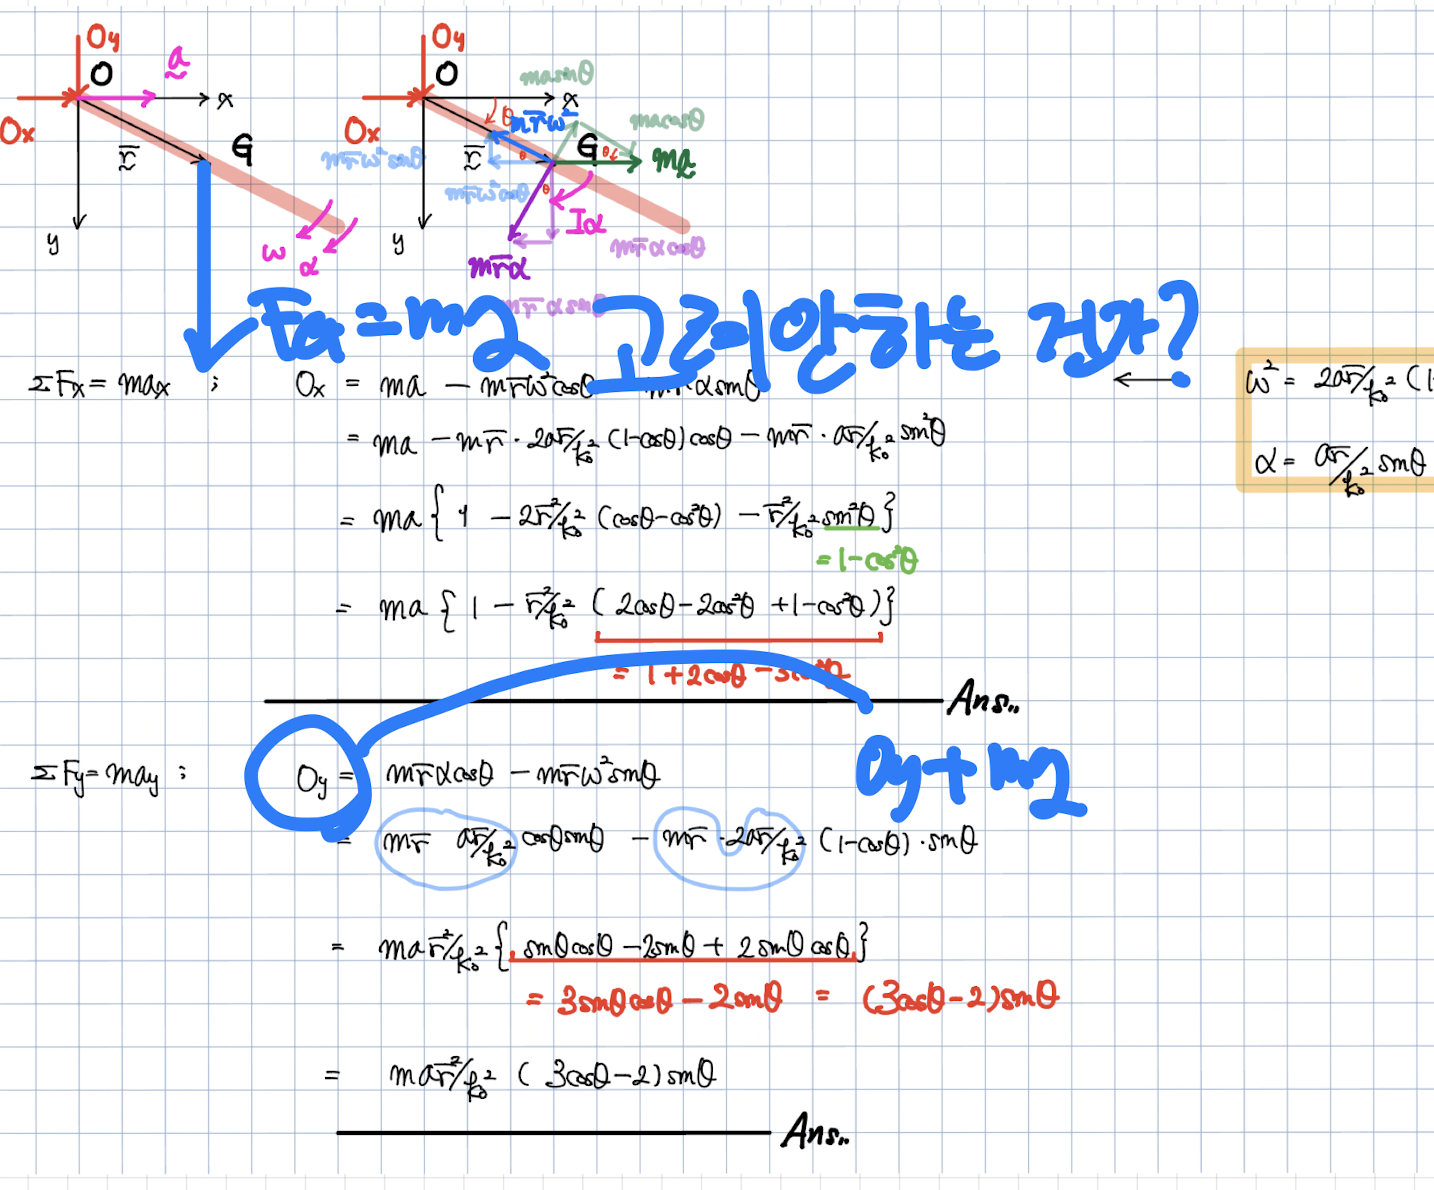 Oy
O
a
x
Ox
r̅
G
y
ω
α
Oy
O
masinθ
x
θ
mr̅ω²
macosθ
Ox
mr̅ω²sinθ
r̅
θ
G
θ
ma
mr̅ω²cosθ
θ
Iα
y
mr̅αcosθ
mr̅α
mr̅αsinθ
FG=mg 고려 안하는 건가?
ΣFx = max ; Ox = ma − mr̅ω²cosθ − mr̅αsinθ
ω² = 2ar̅/k₀² (1-
= ma − mr̅ · 2ar̅/k₀² (1-cosθ) cosθ − mr̅ · ar̅/k₀² sin²θ
α = ar̅/k₀² sinθ
= ma { 1 − 2r̅²/k₀² (cosθ-cos²θ) − r̅²/k₀² sin²θ }
= 1-cos²θ
= ma { 1 − r̅²/k₀² ( 2cosθ-2cos²θ +1-cos²θ ) }
= 1+2cosθ -3cos²θ
Ans..
ΣFy = may ; Oy = mr̅αcosθ − mr̅ω²sinθ
Oy+mg
= mr̅ ar̅/k₀² cosθsinθ − mr̅ · 2ar̅/k₀² (1-cosθ) · sinθ
= ma r̅²/k₀² { sinθcosθ − 2sinθ + 2sinθ cosθ }
= 3sinθcosθ − 2sinθ = (3cosθ-2)sinθ
= mar̅²/k₀² ( 3cosθ-2) sinθ
Ans..